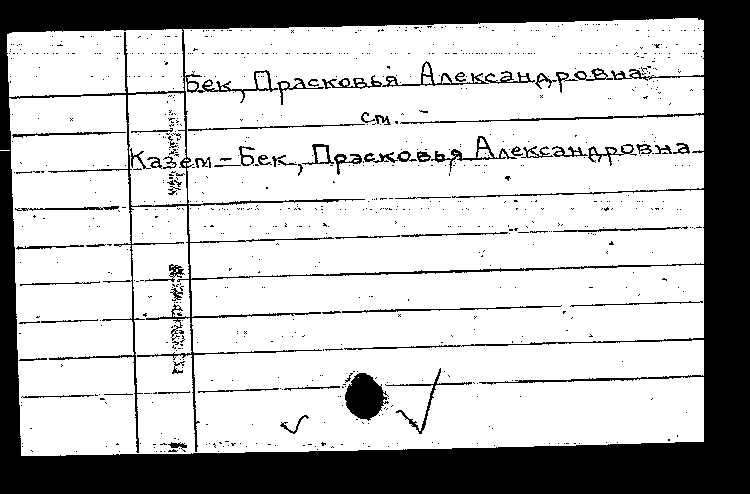 Бек, Прасковья Александровна
см.
Казем-Бек, Прасковья Александровна